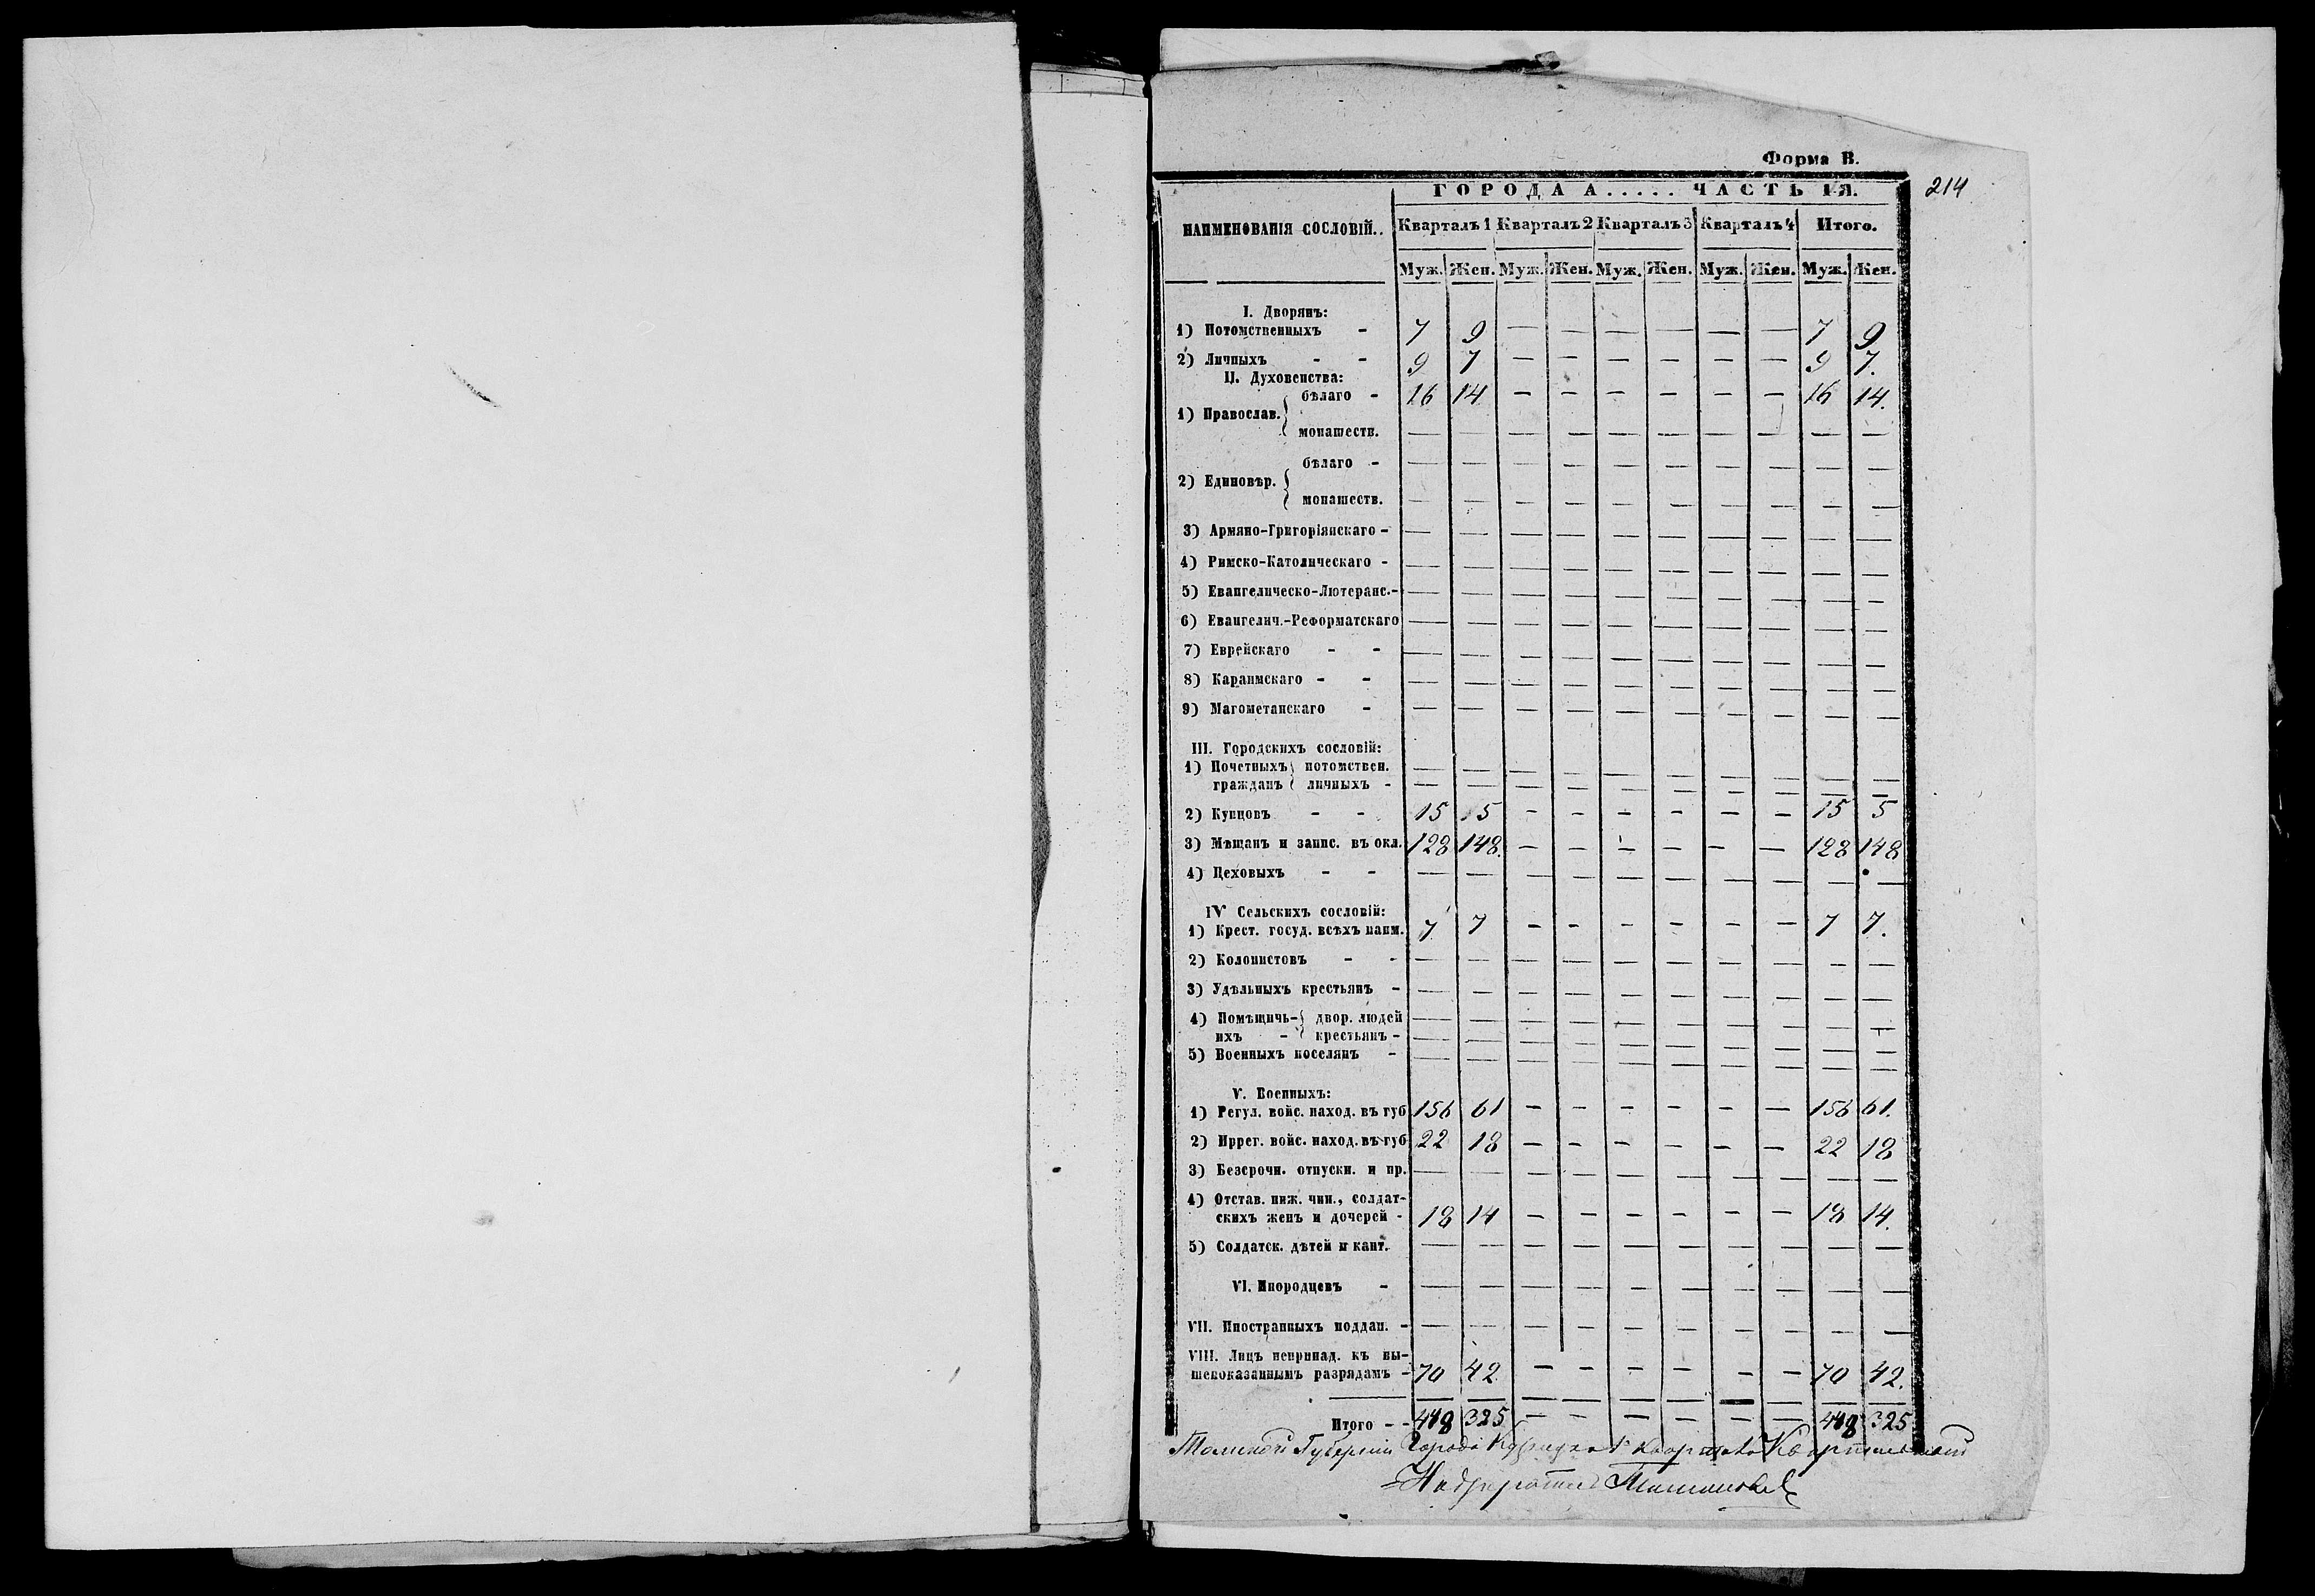 Форма В.
214
ГОРОДА А..... ЧАСТЬ 1Я.
НАИМЕНОВАНІЯ СОСЛОВІЙ.. Кварталъ 1 Кварталъ 2 Кварталъ 3 Кварталъ 4 Итого.
Муж. Жен. Муж. Жен. Муж. Жен. Муж. Жен. Муж. Жен.
I. Дворянъ:
1) Потомственныхъ - 7 9 — — — — — — 7 9
2) Личныхъ - - 9 7 — — — — — — 9 7.
II. Духовенства:
1) Православ. { бѣлаго - 16 14 — — — — — — 16 14.
монашеств. — — — — — — — — — —
2) Единовѣр. { бѣлаго - — — — — — — — — — —
монашеств. — — — — — — — — — —
3) Армяно-Григоріянскаго - — — — — — — — — — —
4) Римско-Католическаго - — — — — — — — — — —
5) Евангелическо-Лютеранс.- — — — — — — — — — —
6) Евангелич.-Реформатскаго — — — — — — — — — —
7) Еврейскаго - - — — — — — — — — — —
8) Караимскаго - - — — — — — — — — — —
9) Магометанскаго - — — — — — — — — — —
III. Городскихъ сословій:
1) Почетныхъ } потомствен. — — — — — — — — — —
гражданъ { личныхъ - — — — — — — — — — —
2) Купцовъ - - 15 15 — — — — — — 15 5
3) Мѣщанъ и запис. въ окл. 128 148. — — — — — — 128 148
4) Цеховыхъ - - — — — — — — — — — —
IV Сельскихъ сословій:
1) Крест. госуд. всѣхъ наим. 7 7 — — — — — — 7 7.
2) Колонистовъ - - — — — — — — — — — —
3) Удѣльныхъ крестьянъ - — — — — — — — — — —
4) Помѣщичь- { двор. людей — — — — — — — — — —
ихъ - { крестьянъ - — — — — — — — — — —
5) Военныхъ поселянъ - — — — — — — — — — —
V. Военныхъ:
1) Регул. войс. наход. въ губ 156 61 — — — — — — 156 61.
2) Иррег. войс. наход. въ губ 22 18 — — — — — — 22 18
3) Безсрочн. отпускн. и пр. — — — — — — — — — —
4) Отстав. ниж. чин., солдат-
скихъ женъ и дочерей - 18 14 — — — — — — 18 14.
5) Солдатск. дѣтей и кант. — — — — — — — — — —
VI. Инородцевъ - — — — — — — — — — —
VII. Иностранныхъ поддан. - — — — — — — — — — —
VIII. Лицъ непринад. къ вы-
шепоказаннымъ разрядамъ - 70 42 — — — — — — 70 42.
Итого - - 448 325 — — — — — — 448 325
Томской Губерніи Города Кузнецка 1 Квартала Квартальный
Надзиратель